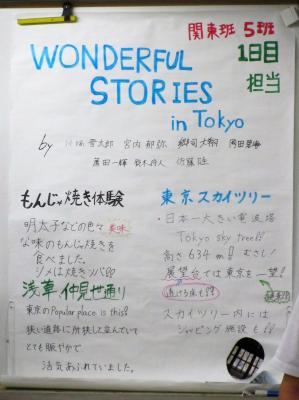 関東班 5班
1日目
担当
WONDERFUL
STORIES
in Tokyo
by
宮内 郁弥
佐藤 陸
もんじゃ焼き体験
明太子などの色々
美味
な味のもんじゃ焼きを
食べました。
シメは焼きソバ
浅草仲見世通り
東京のPopular place is this!!
狭い道路に所狭しと並んでいて
とても賑やかで
活気あふれていました。
東京スカイツリー
・日本一大きい電波塔
Tokyo sky tree!!
高さ634m!! むさし!
展望台では東京を一望!!
透ける床も!!
スカイツリー内には
ショッピング施設も!!